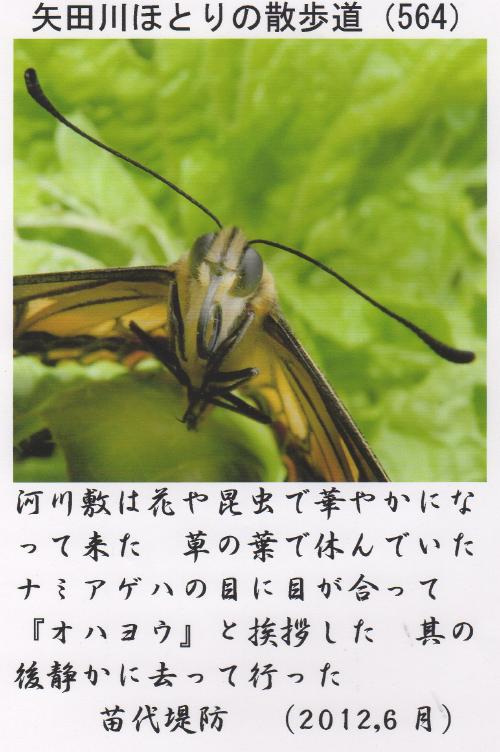 矢田川ほとりの散歩道（564）
河川敷は花や昆虫で華やかにな
って来た　草の葉で休んでいた
ナミアゲハの目に目が合って
『オハヨウ』と挨拶した　其の
後静かに去って行った
苗代堤防　（2012,6月）